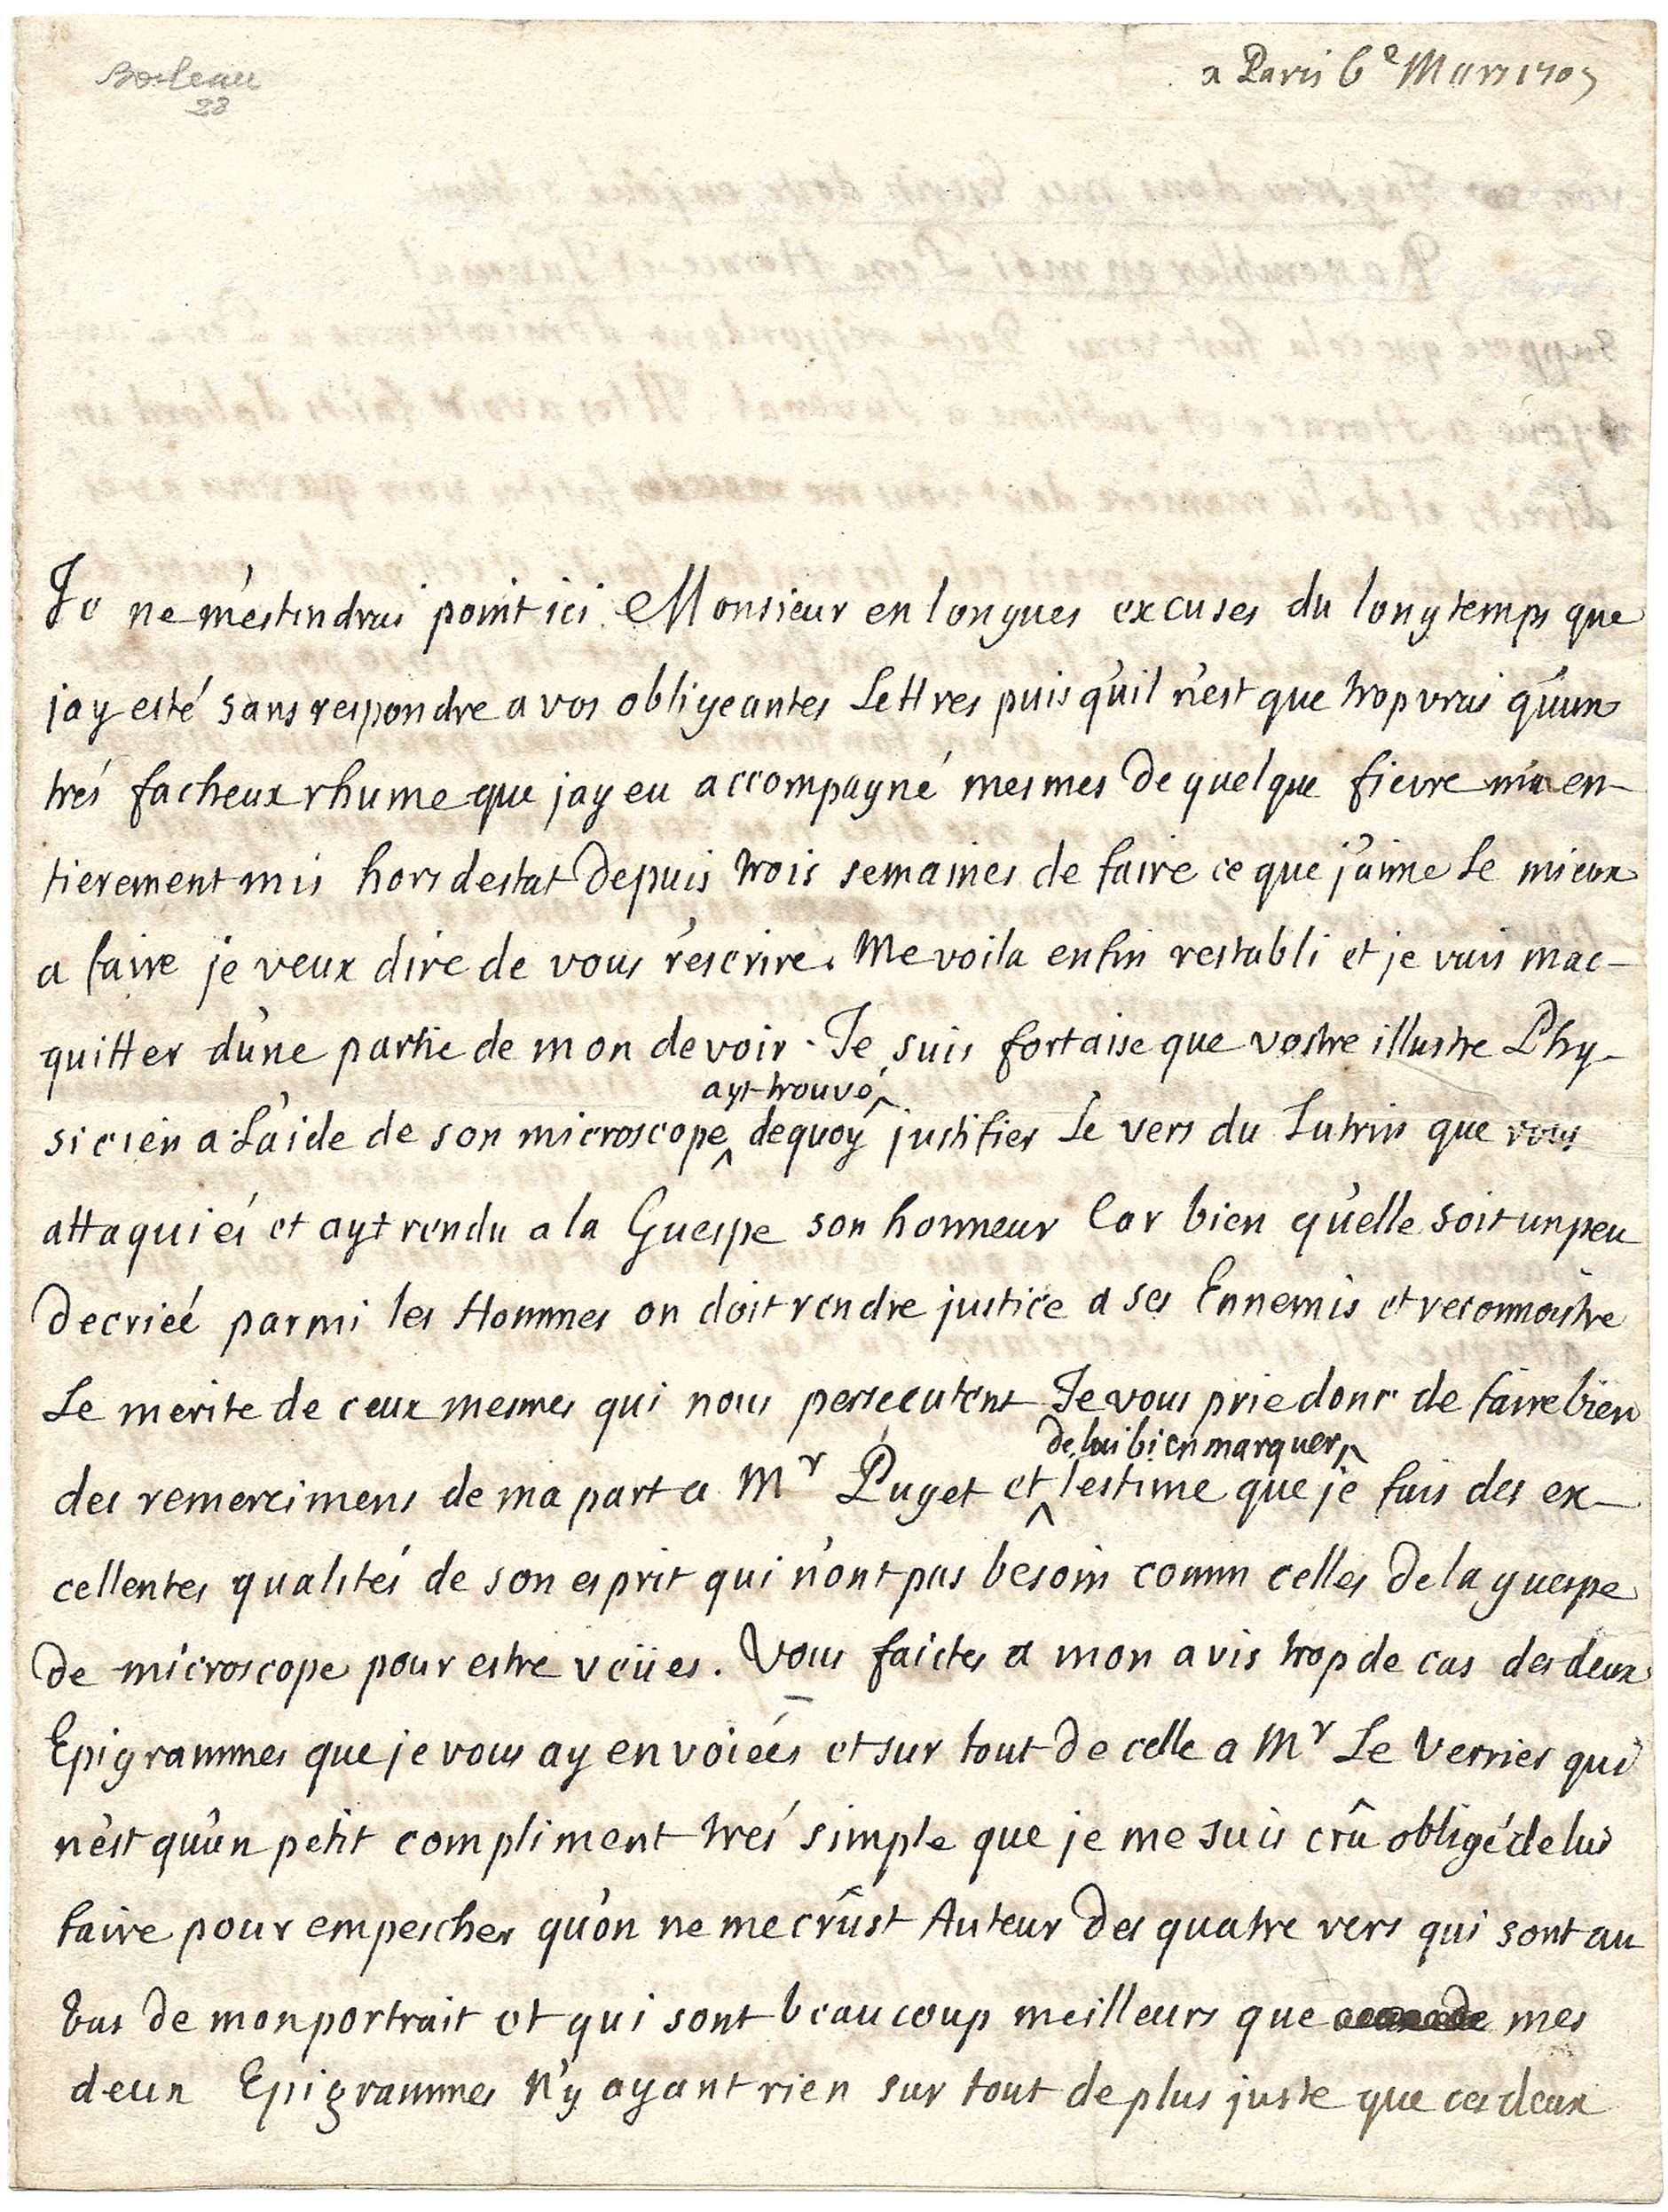 Boileau
28
a Paris 6e Mars 1705
Je ne m'estendrai point ici Monsieur en longues excuses du long temps que
j'ay esté sans respondre a vos obligeantes Lettres puis qu'il n'est que trop vrai qu'un
trés facheux rhume que j'ay eu accompagné mesmes de quelque fievre m'a en-
tierement mis hors destat depuis trois semaines de faire ce que j'aime le mieux
a faire je veux dire de vous rescrire. Me voila enfin restabli et je vais mac-
quitter d'une partie de mon devoir. Je suis fort aise que vostre illustre Phy-
ayt trouvé
sicien a l'aide de son microscope dequoy justifier le vers du Lutrin que vous
attaquiés et ayt rendu a la Guespe son honneur Car bien qu'elle soit un peu
decriée parmi les Hommes on doit rendre justice a ses Ennemis et reconnoistre
le merite de ceux mesmes qui nous persecutent Je vous prie donc de faire bien
de lui bien marquer
des remercimens de ma part a Mr Puget et l'estime que je fais des ex-
cellentes qualités de son esprit qui n'ont pas besoin comm celles de la guespe
de microscope pour estre veües. Vous faictes a mon avis trop de cas des deux
Epigrammes que je vous ay envoiées et sur tout de celle a Mr Le Verrier qui
n'est qu'un petit compliment trés simple que je me suis crû obligé de lui
faire pour empescher qu'on ne me crûst Auteur des quatre vers qui sont au
bas de mon portrait et qui sont beaucoup meilleurs que mes
deux Epigrammes n'y ayant rien sur tout de plus juste que ces deux